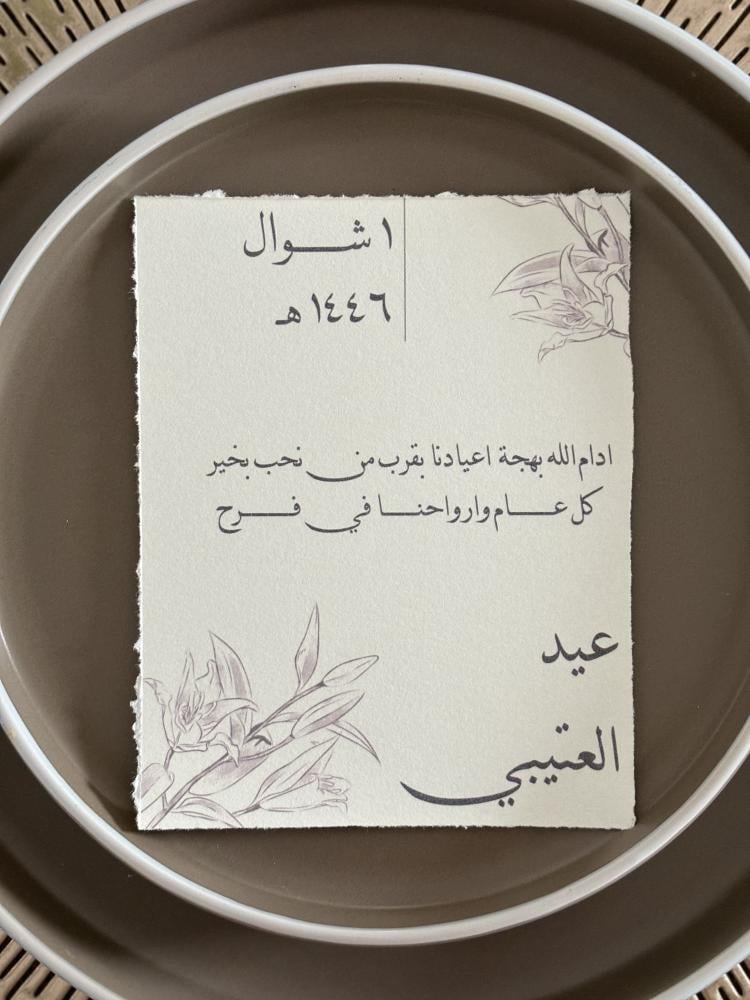 ١ شـــوال
١٤٤٦ هـ
ادام الله بهجة اعيادنا بقرب من نحب بخير
كل عـــام وارواحنـــا في فـــرح
عيد
العتيبي